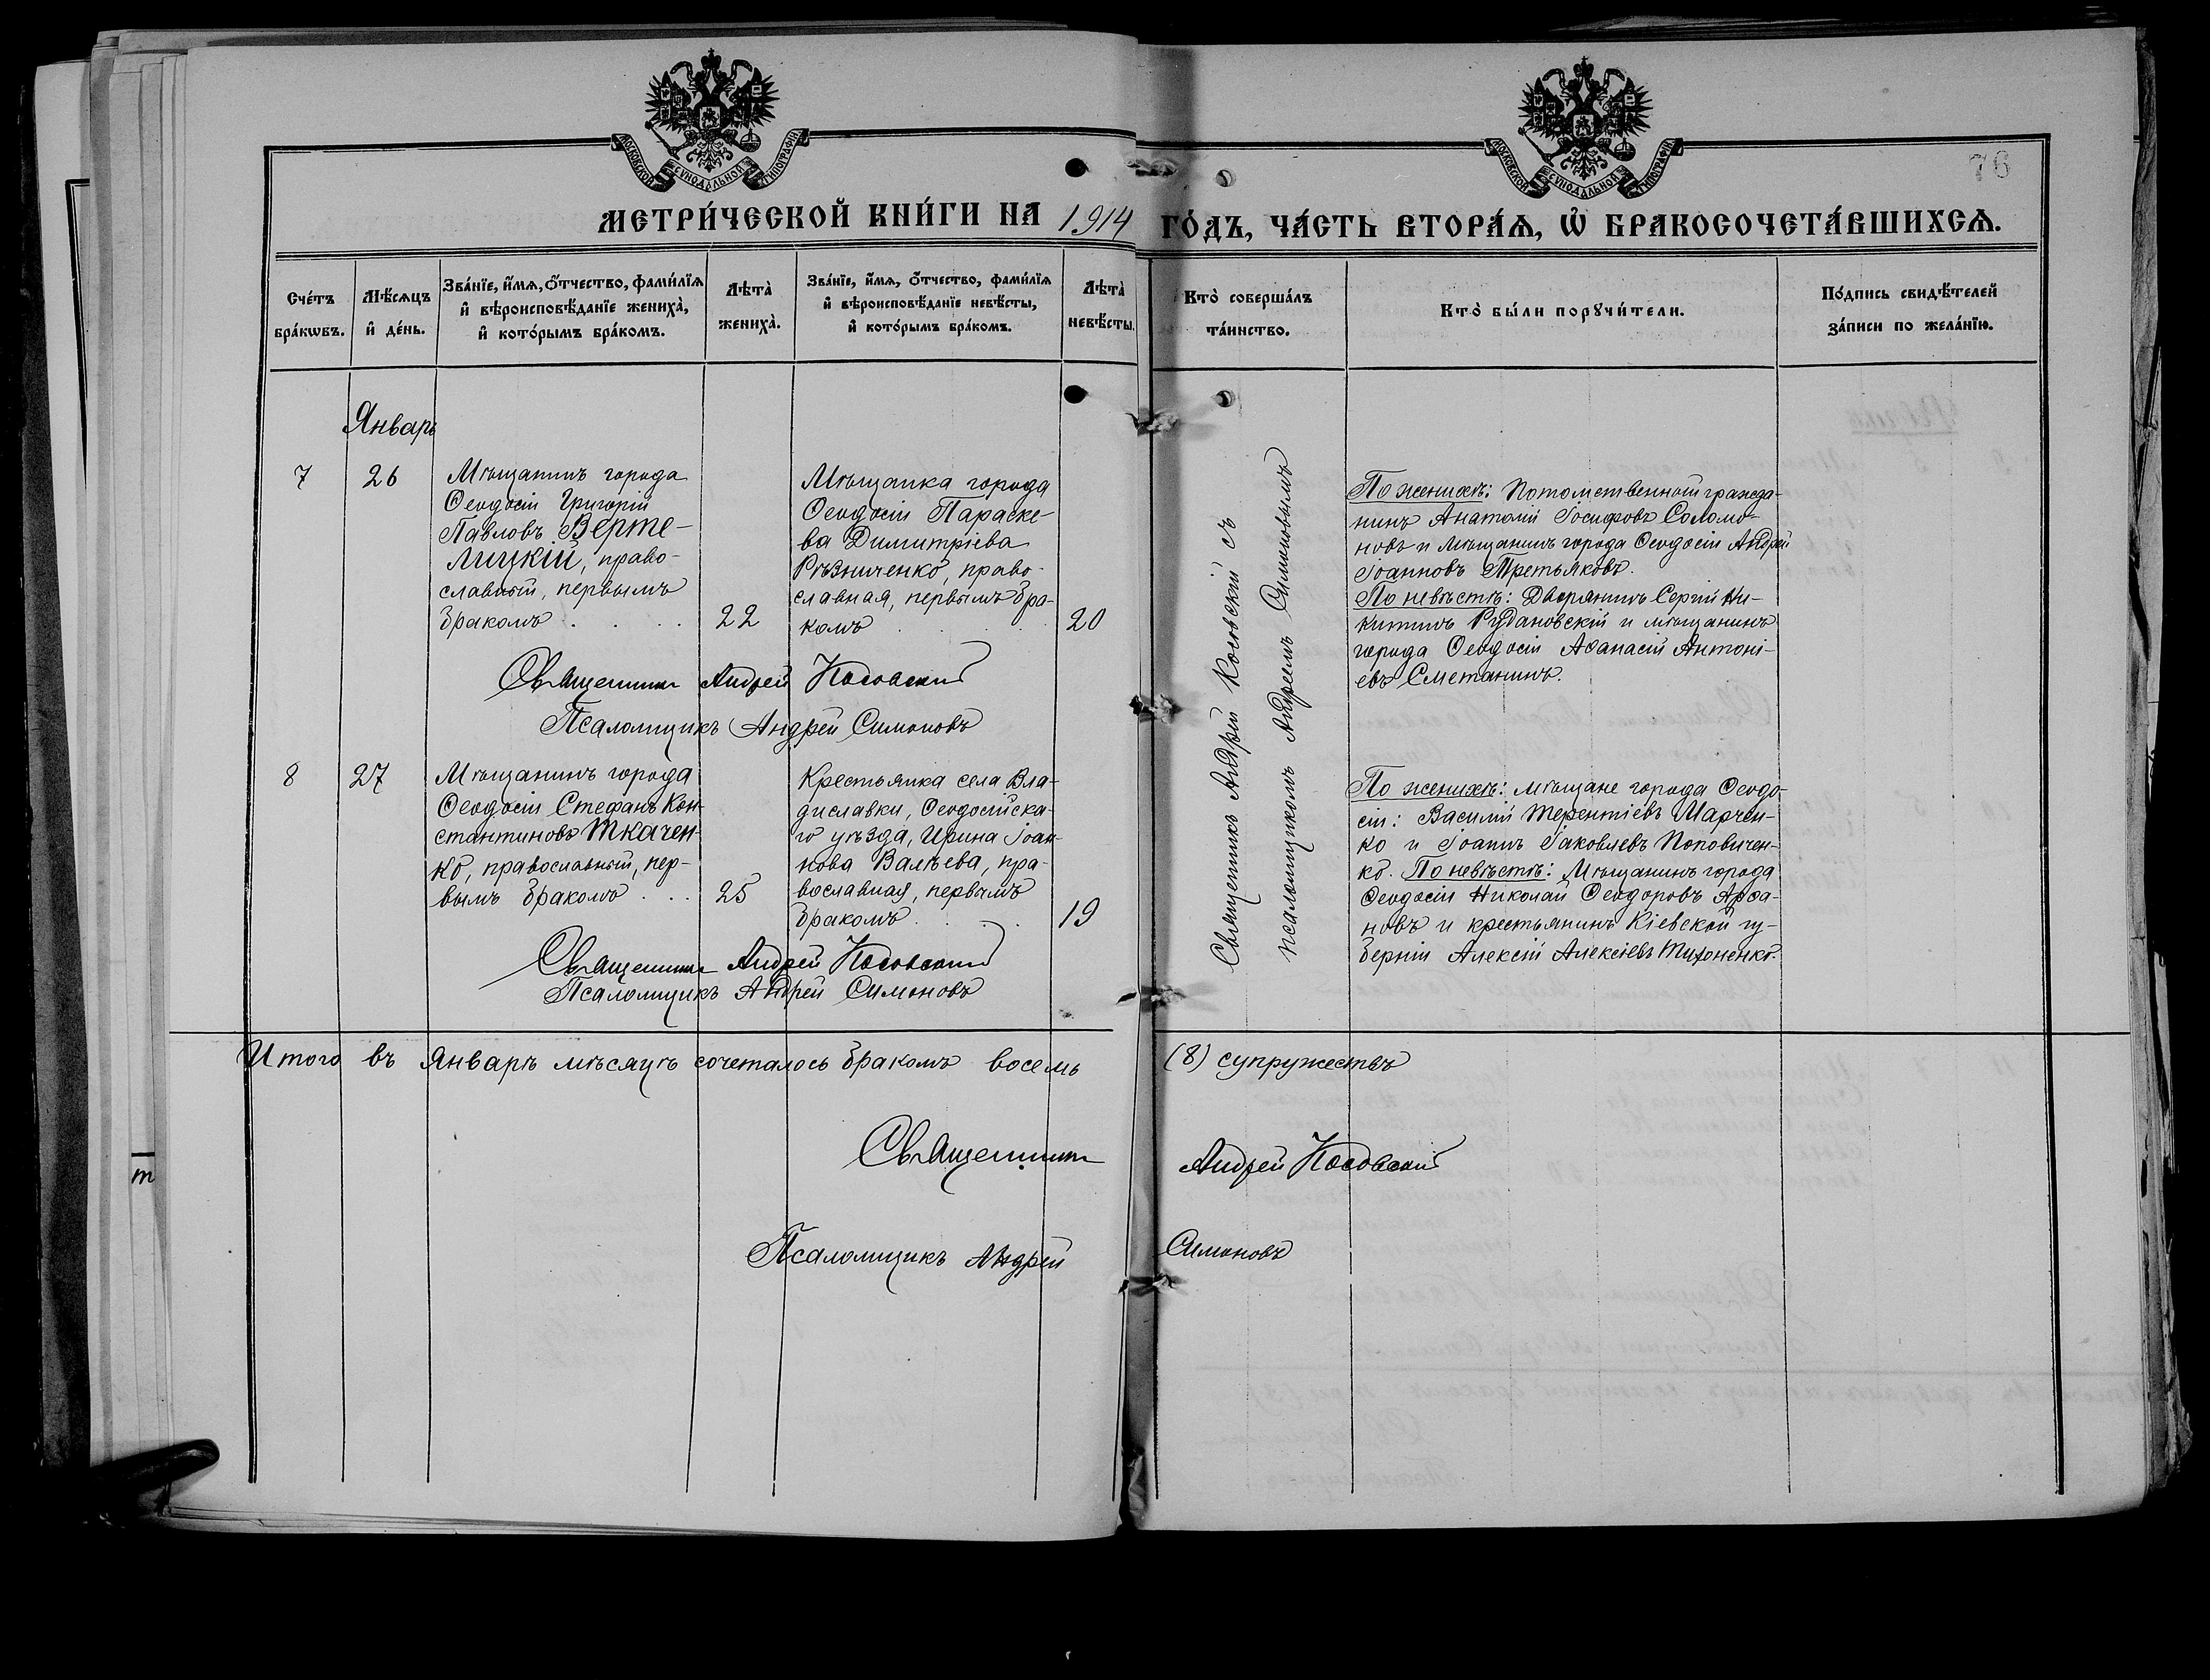 МОСКОВСКОЙ СУНОДАЛЬНОЙ ТИПОГРАФІИ
МОСКОВСКОЙ СУНОДАЛЬНОЙ ТИПОГРАФІИ
76
МЕТРИ́ЧЕСКОЙ КНИ́ГИ НА 1914 ГО́ДЪ, ЧА́СТЬ ВТОРА́Ѧ, Ѡ҆ БРАКОСОЧЕТА́ВШИХСѦ.
Сче́тъ
бра́кѡвъ.
Мѣ́сѧцъ
и҆ де́нь.
Зва́нїе, и҆́мѧ, ѻ҆́тчество, фами́лїѧ
и҆ вѣроисповѣ́данїе жениха̀,
и҆ кото́рымъ бра́комъ.
Лѣта̀
жениха̀.
Зва́нїе, и҆́мѧ, ѻ҆́тчество, фами́лїѧ
и҆ вѣроисповѣ́данїе невѣ́сты,
и҆ кото́рымъ бра́комъ.
Лѣта̀
невѣ́сты.
Кто̀ соверша́лъ
та́инство.
Кто̀ бы́ли порꙋчи́тели.
По́дпись свидѣ́телей
за́писи по жела́нїю.
Январь
7
26
Мѣщанинъ города
Ѳеодосіи Григорій
Павловъ Верте-
лицкій, право-
славный, первымъ
бракомъ . . . .
22
Мѣщанка города
Ѳеодосіи Параске-
ва Димитріева
Рѣзниченко, право-
славная, первымъ бра-
комъ . . . .
20
Священникъ Андрей Косовскій съ
псаломщикомъ Андреемъ Симоновымъ
По женихѣ: Потомственный гражда-
нинъ Анатолій Іосифовъ Соломо-
новъ и мѣщанинъ города Ѳеодосіи Андрей
Іоанновъ Третьяковъ.
По невѣстѣ: Дворянинъ Сергій Ни-
китинъ Рудановскій и мѣщанинъ
города Ѳеодосіи Аѳанасій Антоні-
евъ Сметанинъ.
Священникъ Андрей Косовскій
Псаломщикъ Андрей Симоновъ
8
27
Мѣщанинъ города
Ѳеодосіи Стефанъ Кон-
стантиновъ Ткачен-
ко, православный, пер-
вымъ бракомъ . . .
25
Крестьянка села Вла-
диславки, Ѳеодосійска-
го уѣзда, Ирина Іоан-
нова Валѣева, пра-
вославная, первымъ
бракомъ . . . .
19
По женихѣ: мѣщане города Ѳеодо-
сіи: Василій Терентіевъ Марчен-
ко и Іоаннъ Іаковлевъ Поповичен-
ко. По невѣстѣ: Мѣщанинъ города
Ѳеодосіи Николай Ѳеодоровъ
и крестьянинъ Кіевской гу-
берніи Алексій Алексіевъ Тихоненко.
Священникъ Андрей Косовскій
Псаломщикъ Андрей Симоновъ
Итого въ Январѣ мѣсяцѣ сочеталось бракомъ восемь (8) супружествъ
Священникъ Андрей Косовскій
Псаломщикъ Андрей Симоновъ
т